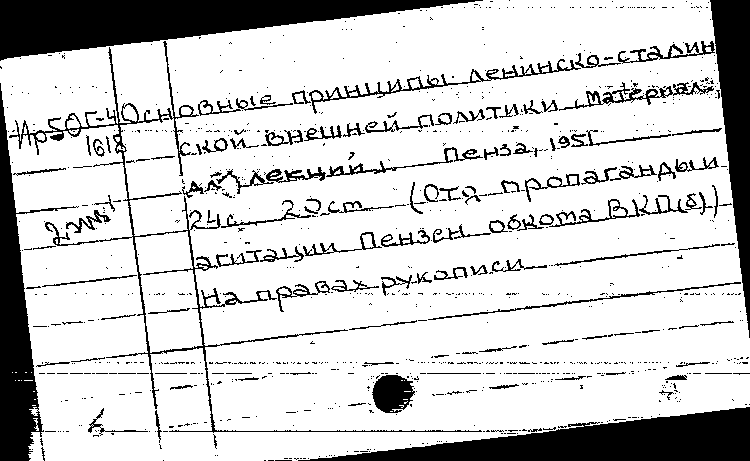 Ир50Г-4 Основные принципы ленинско-сталин
1618 ской внешней политики. Материал
для лекций. Пенза, 1951
24с. 20см (Отд пропаганды и
агитации Пензен обкома ВКП(б))
На правах рукописи
6.